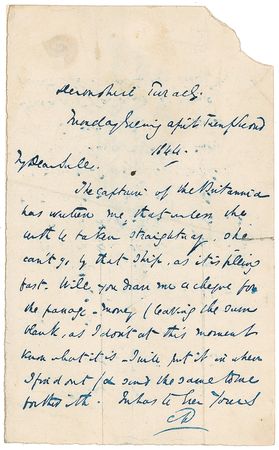 Devonshire Terrace.
Monday Evening April Twenty Second
1844.
My Dear
The Captain of the Britannia
has written me, that unless the
berth be taken straightway, she
can't go by that ship, as it is filling
fast. Will you draw me a cheque for
the passage-money (leaving the sum
blank, as I don't at this moment
know what it is - I will put it in when
I find out) and send the same to me
forthwith. In haste Ever Yours
CD